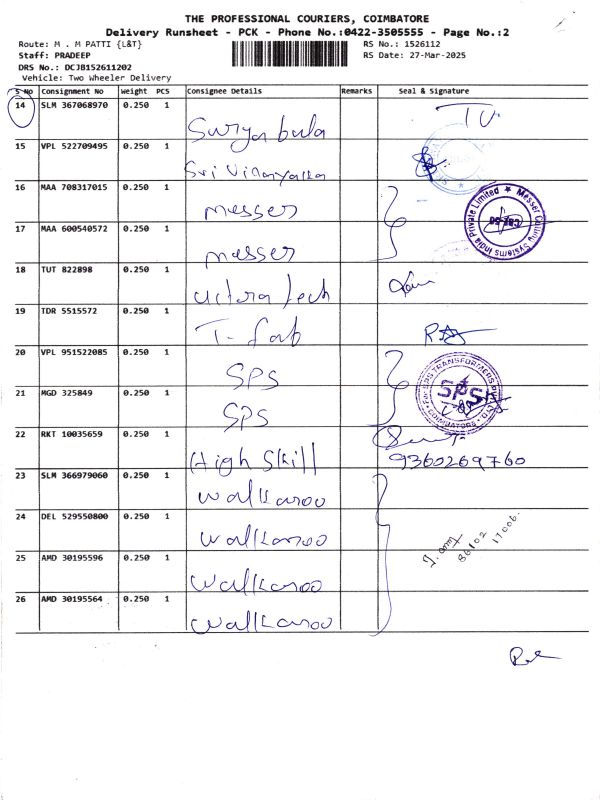 THE PROFESSIONAL COURIERS, COIMBATORE
Delivery Runsheet - PCK - Phone No.:0422-3505555 - Page No.:2
Route: M . M PATTI {L&T} RS No.: 1526112
Staff: PRADEEP RS Date: 27-Mar-2025
DRS No.: DCJB152611202
Vehicle: Two Wheeler Delivery
S No Consignment No Weight PCS Consignee Details Remarks Seal & Signature
14 SLM 367068970 0.250 1 Suryabala
15 VPL 522709495 0.250 1 Sri Vinayaka
16 MAA 708317015 0.250 1 messer
Messer Cutting Systems India Private Limited
CBE-50
17 MAA 600540572 0.250 1 messer
18 TUT 822898 0.250 1 tech
19 TDR 5515572 0.250 1 T. Fab
20 VPL 951522085 0.250 1 SPS
For SPS TRANSFORMERS
SPS
COIMBATORE
21 MGD 325849 0.250 1 SPS
22 RKT 10035659 0.250 1 High Skill 9360269760
23 SLM 366979060 0.250 1 Walkaroo
24 DEL 529550800 0.250 1 Walkaroo
86102 17006.
25 AMD 30195596 0.250 1 Walkaroo
26 AMD 30195564 0.250 1 Walkaroo